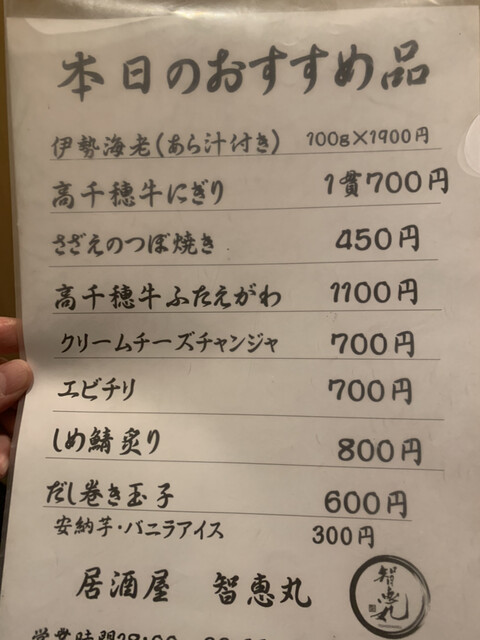 本日のおすすめ品
伊勢海老(あら汁付き) 100g×1900円
高千穂牛にぎり 1貫700円
さざえのつぼ焼き 450円
高千穂牛ふたえがわ 1100円
クリームチーズチャンジャ 700円
エビチリ 700円
しめ鯖炙り 800円
だし巻き玉子 600円
安納芋・バニラアイス 300円
居酒屋 智恵丸
智恵丸
営業時間